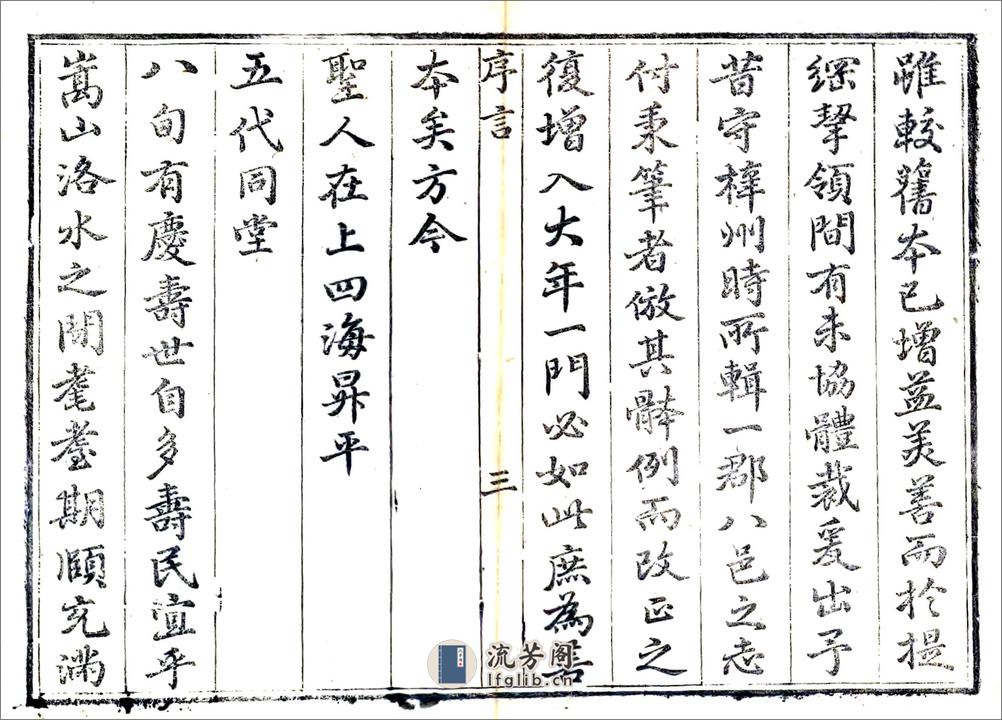 雖較舊本已增益美善而於提
綱挈領間有未協體裁爰出予
昔守梓州時所輯一郡八邑之志
付秉筆者倣其骵例而改正之
復增入大年一門必如此庶為善
序言
三
本矣方今
聖人在上四海昇平
五代同堂
八旬有慶壽世自多壽民宜乎
嵩山洛水之間耄耋期頤充滿
流芳阁
lfglib.cn